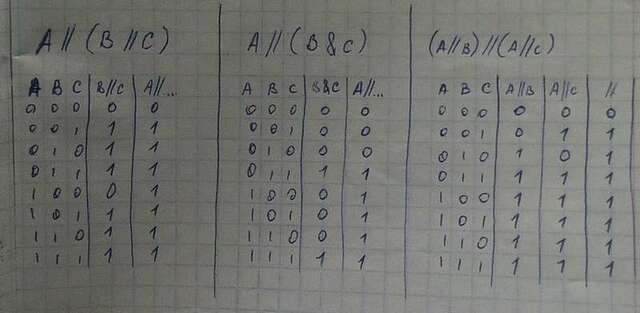 A//(B//C)
A B C B//C A//...
0 0 0 0 0
0 0 1 1 1
0 1 0 1 1
0 1 1 1 1
1 0 0 0 1
1 0 1 1 1
1 1 0 1 1
1 1 1 1 1
A//(B&C)
A B C B&C A//...
0 0 0 0 0
0 0 1 0 0
0 1 0 0 0
0 1 1 1 1
1 0 0 0 1
1 0 1 0 1
1 1 0 0 1
1 1 1 1 1
(A//B)//(A//C)
A B C A//B A//C //
0 0 0 0 0 0
0 0 1 0 1 1
0 1 0 1 0 1
0 1 1 1 1 1
1 0 0 1 1 1
1 0 1 1 1 1
1 1 0 1 1 1
1 1 1 1 1 1